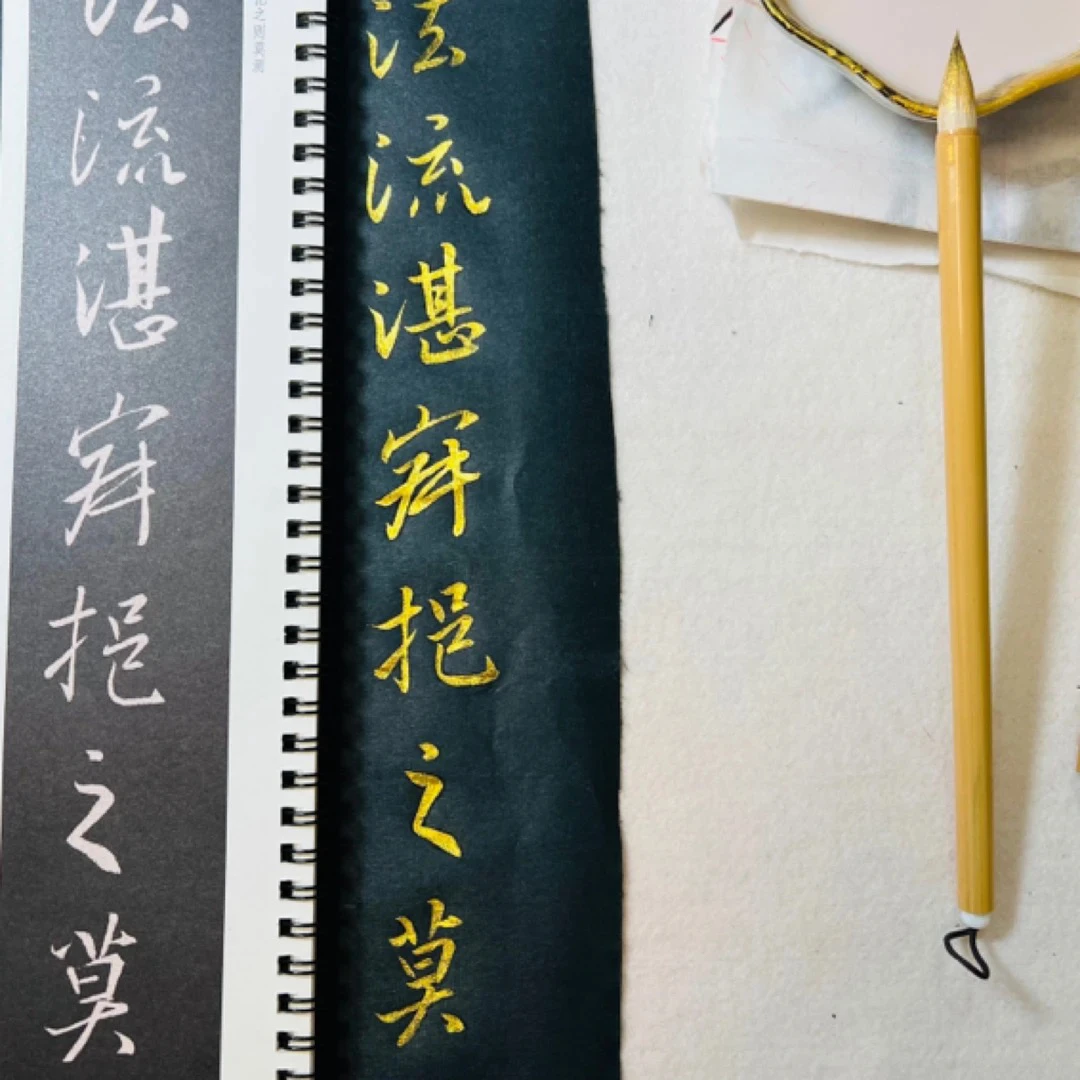 法流湛寂挹之莫
法流湛寂挹之莫